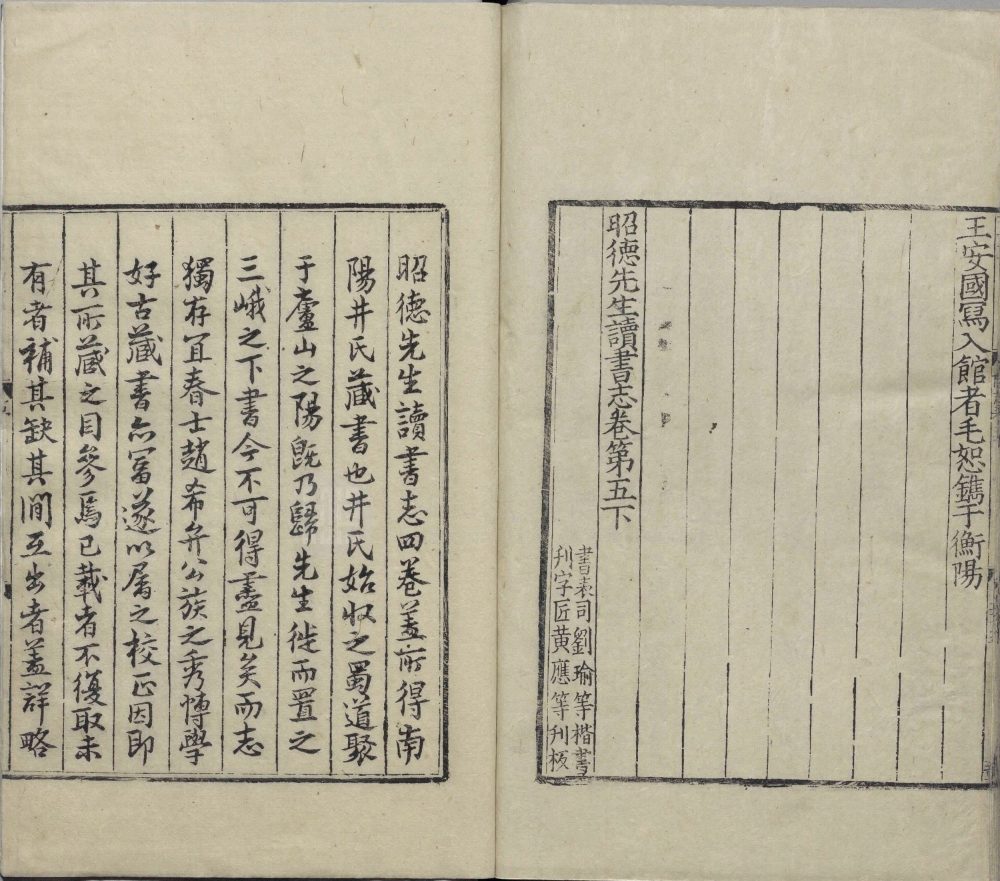 王安國寫入館者毛恕鐫于衡陽
昭德先生讀書志卷第五下
書表司劉瑜等楷書
刊字匠黃應等刊板
昭德先生讀書志四卷盖所得南
陽井氏藏書也井氏始收之蜀道聚
于廬山之陽既乃歸先生徙而置之
三峨之下書今不可得盡見矣而志
獨存宜春士趙希弁公族之秀博學
好古藏書亦富遂以屬之校正因即
其所藏之目參焉已載者不復取未
有者補其缺其間互出者盖詳略